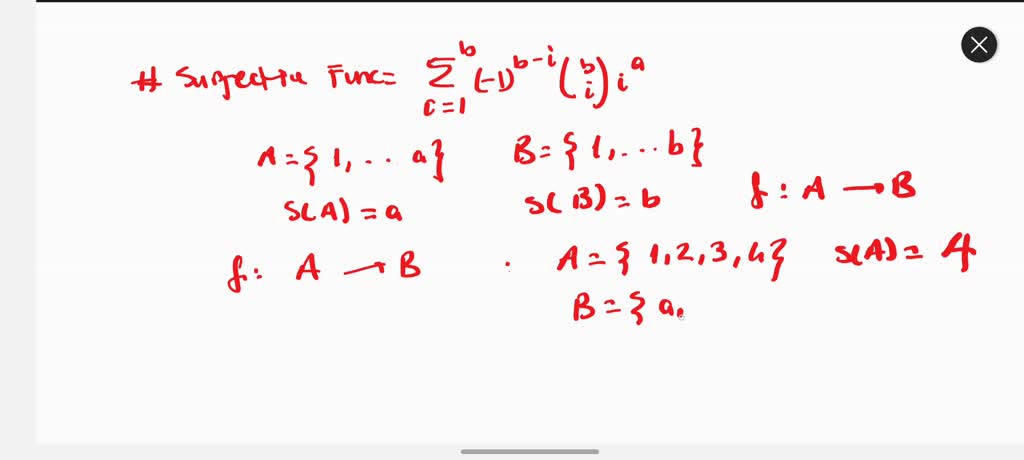 # Surjective Func = \sum_{c=1}^{b} (-1)^{b-i} \binom{b}{i} i^{a}
A = {1, ... a} B = {1, ... b}
S(A) = a S(B) = b f : A → B
f : A → B . A = {1, 2, 3, 4} S(A) = 4
B = { a,